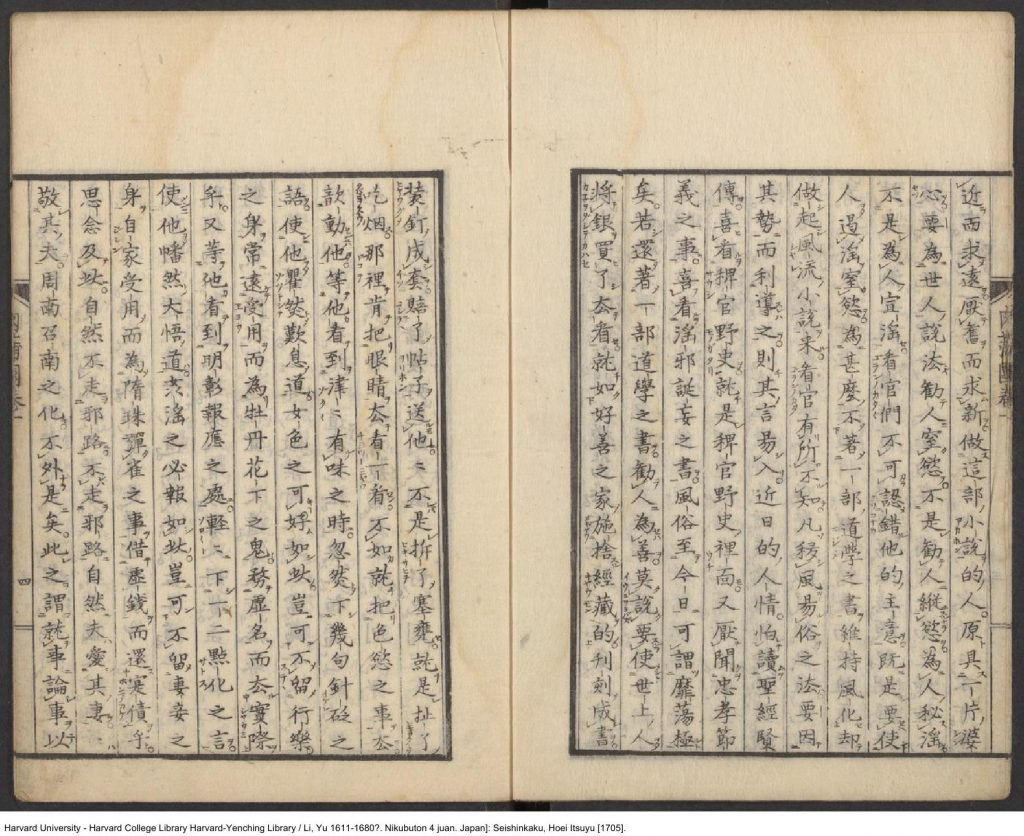 近而求遠厭舊而求新做這部小說的人原具一片婆
心要為世人說法勸人窒慾不是勸人縱慾為人秘淫
不是為人宣淫看官們不可認錯他的主意既是要使
人遏淫窒慾為甚麼不著一部道學之書維持風化却
做起風流小說來看官有所不知凡移風易俗之法要因
其勢而利導之則其言易入近日的人情怕讀聖經賢
傳喜看稗官野史就是稗官野史裡面又厭聞忠孝節
義之事喜看淫邪誕妄之書風俗至今日可謂靡蕩極
矣若還著一部道學之書勸人為善莫說要使世上人
將銀買了去看就如好善之家施捨經藏的刊刻成書
裝釘成套賠了帖子送他〻不是拆了塞甕就是扯了
吃烟那裡肯把眼睛去看一看不如就把色慾之事去
歆動他等他看到津〻有味之時忽然下幾句針砭之
語使他瞿然歎息道女色之可好如此豈可不留行樂
之身常遠受用而為牡丹花下之鬼務虛名而去實際
乎又等他看到明彰報應之處輕〻下一二點化之言
使他幡然大悟道姦淫之必報如此豈可不留妻妾之
身自家受用而為隋珠彈雀之事借虛錢而還實債乎
思念及此自然不走邪路不走邪路自然夫愛其妻〻
敬其夫周南召南之化不外是矣此之謂就事論事以
四
Harvard University - Harvard College Library Harvard-Yenching Library / Li, Yu 1611-1680?. Nikubuton 4 juan. Japan]: Seishinkaku, Hoei Itsuyu [1705].